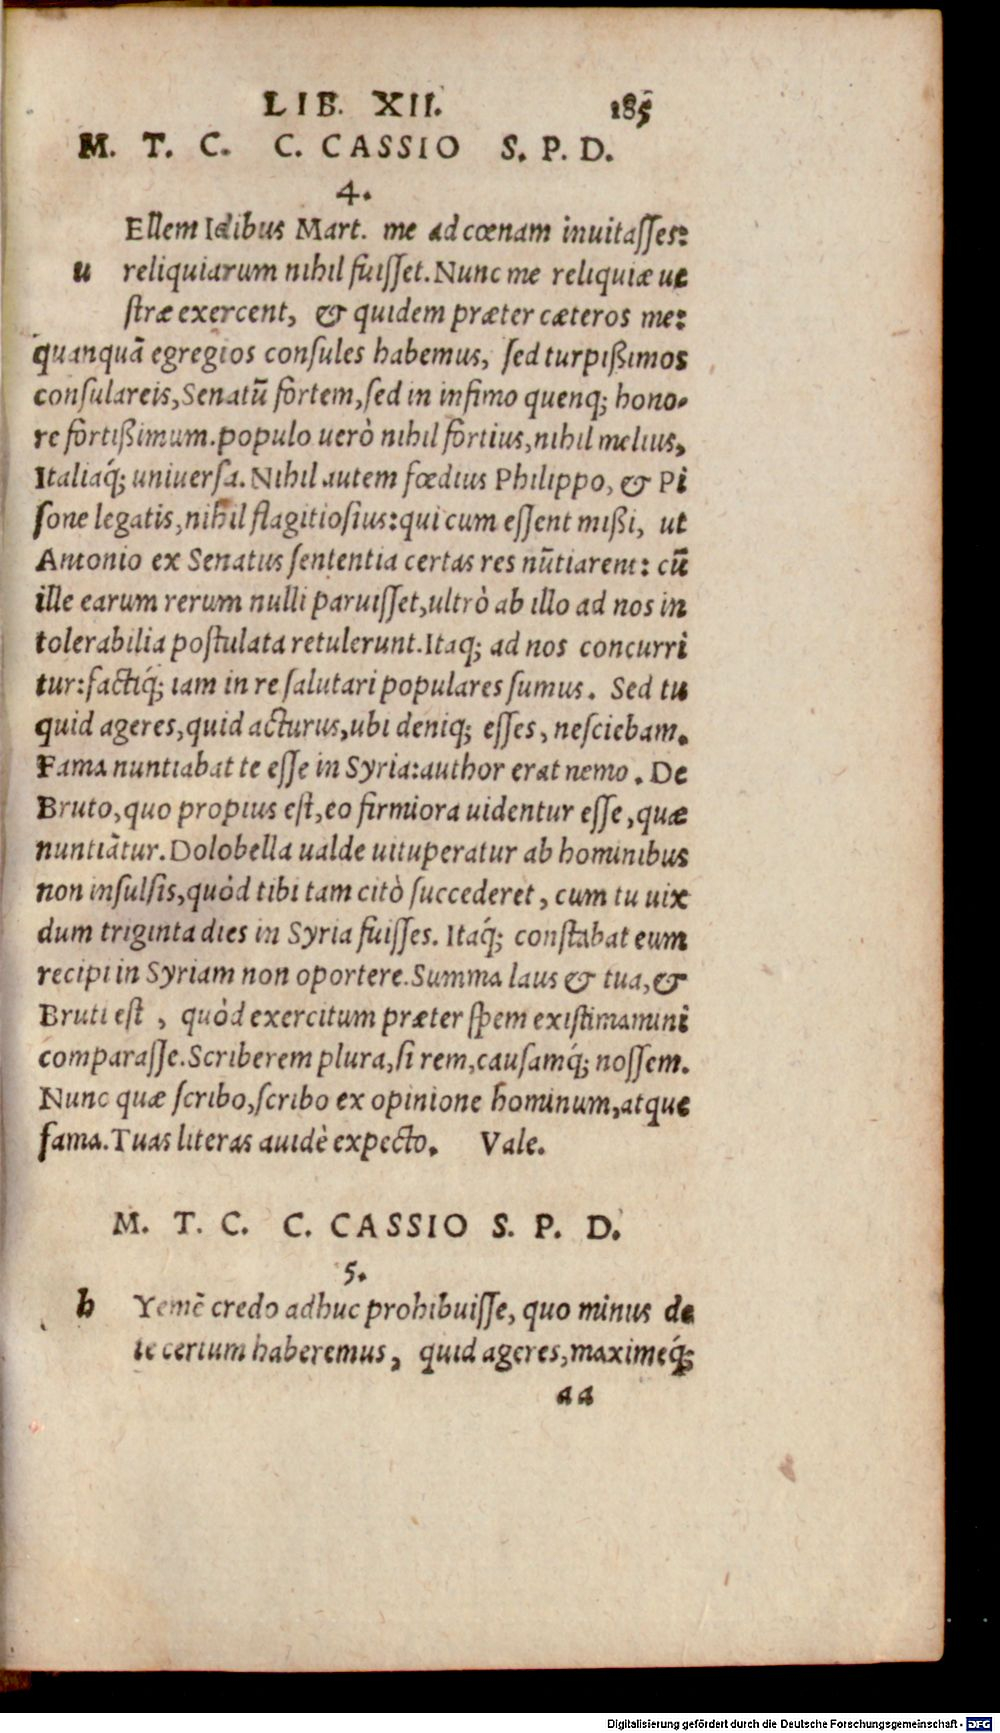 LIB. XII. 185
M. T. C. C. CASSIO S. P. D.
4.
Ellem Idibus Mart. me ad cœnam inuitasses:
u reliquiarum nihil fuisset. Nunc me reliquiæ ue
stræ exercent, & quidem præter cæteros me:
quanquā egregios consules habemus, sed turpißimos
consulareis, Senatū fortem, sed in infimo quenq; hono-
re fortißimum. populo uerò nihil fortius, nihil melius,
Italiaq́; uniuersa. Nihil autem fœdius Philippo, & Pi
sone legatis, nihil flagitiosius: qui cum essent mißi, ut
Antonio ex Senatus sententia certas res nūtiarent: cū
ille earum rerum nulli paruisset, ultrò ab illo ad nos in
tolerabilia postulata retulerunt. Itaq; ad nos concurri
tur: factiq́; iam in re salutari populares sumus. Sed tu
quid ageres, quid acturus, ubi deniq; esses, nesciebam.
Fama nuntiabat te esse in Syria: author erat nemo. De
Bruto, quo propius est, eo firmiora uidentur esse, quæ
nuntiātur. Dolobella ualde uituperatur ab hominibus
non insulsis, quòd tibi tam citò succederet, cum tu uix
dum triginta dies in Syria fuisses. Itaq́; constabat eum
recipi in Syriam non oportere. Summa laus & tua, &
Bruti est, quòd exercitum præter spem existimamini
comparasse. Scriberem plura, si rem, causamq́; nossem.
Nunc quæ scribo, scribo ex opinione hominum, atque
fama. Tuas literas auidè expecto. Vale.
M. T. C. C. CASSIO S. P. D.
5.
h Yemē credo adhuc prohibuisse, quo minus de
te certum haberemus, quid ageres, maximeq́;
aa
Digitalisierung gefördert durch die Deutsche Forschungsgemeinschaft - DFG